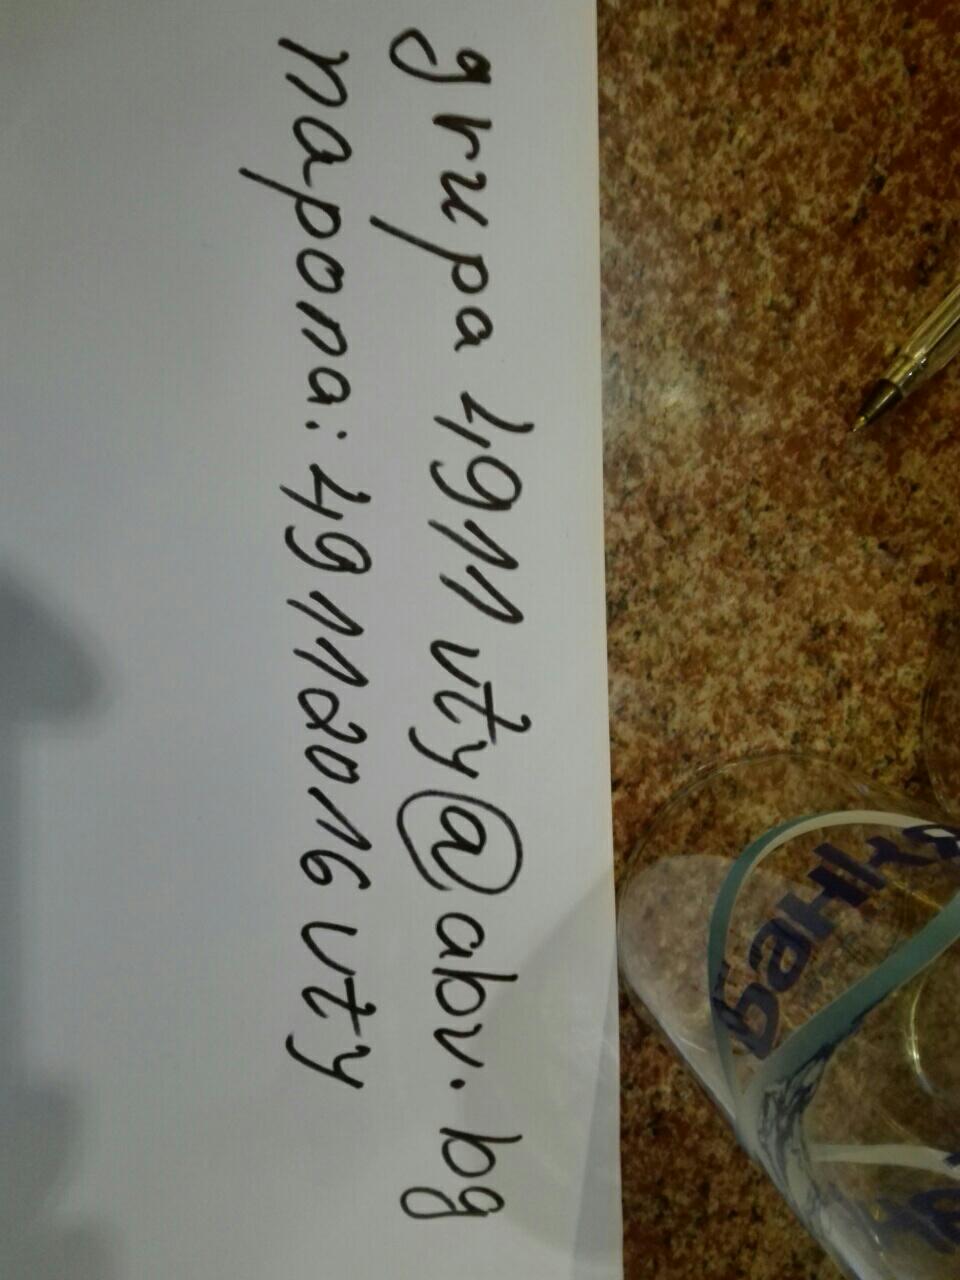 grupa 4911 vty@abv.bg
парола: 49112016 vty
Банкя